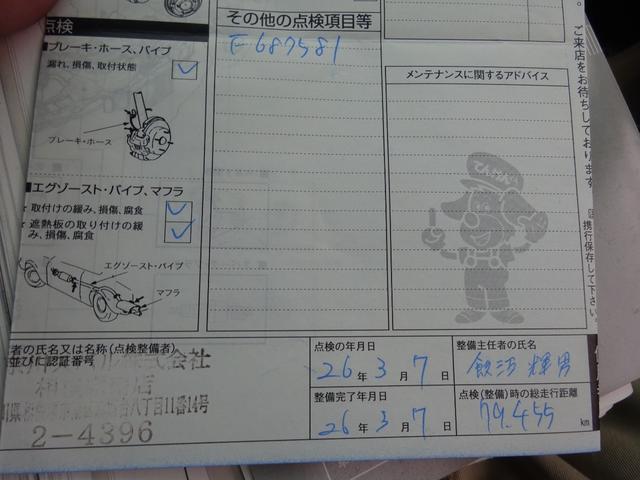 点検
その他の点検項目等
F687581
■ブレーキ・ホース、パイプ
漏れ、損傷、取付状態
ブレーキ・ホース
■エグゾースト・パイプ、マフラ
取付けの緩み、損傷、腐食
遮熱板の取り付けの緩
み、損傷、腐食
エグゾースト・パイプ
マフラ
メンテナンスに関するアドバイス
てんけんくん
ご来店をお待ちしております
携行保存して下さい。
者の氏名又は名称(点検整備者)
並びに認証番号
株式会社
店
八丁目11番14号
2-4396
点検の年月日
26年3月7日
整備完了年月日
26年3月7日
整備主任者の氏名
飯沼 輝男
点検(整備)時の総走行距離
79.455 km